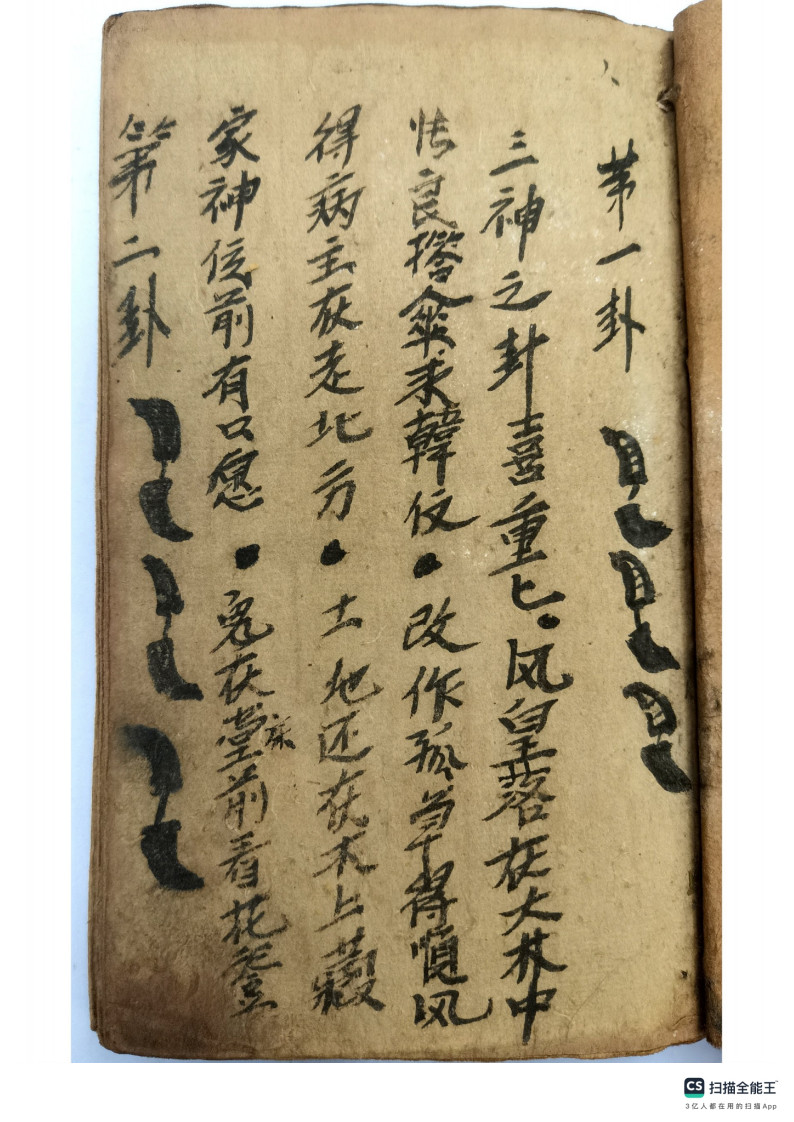 第一卦
三神之卦喜重匕。凤皇落在大林中
怯良搭伞求韓仅。改作孤舟得順风
得病主在走北方。土地还在木上藏
家神位前有口愿。鬼在堂前看花登
第二卦
扫描全能王
3亿人都在用的扫描App